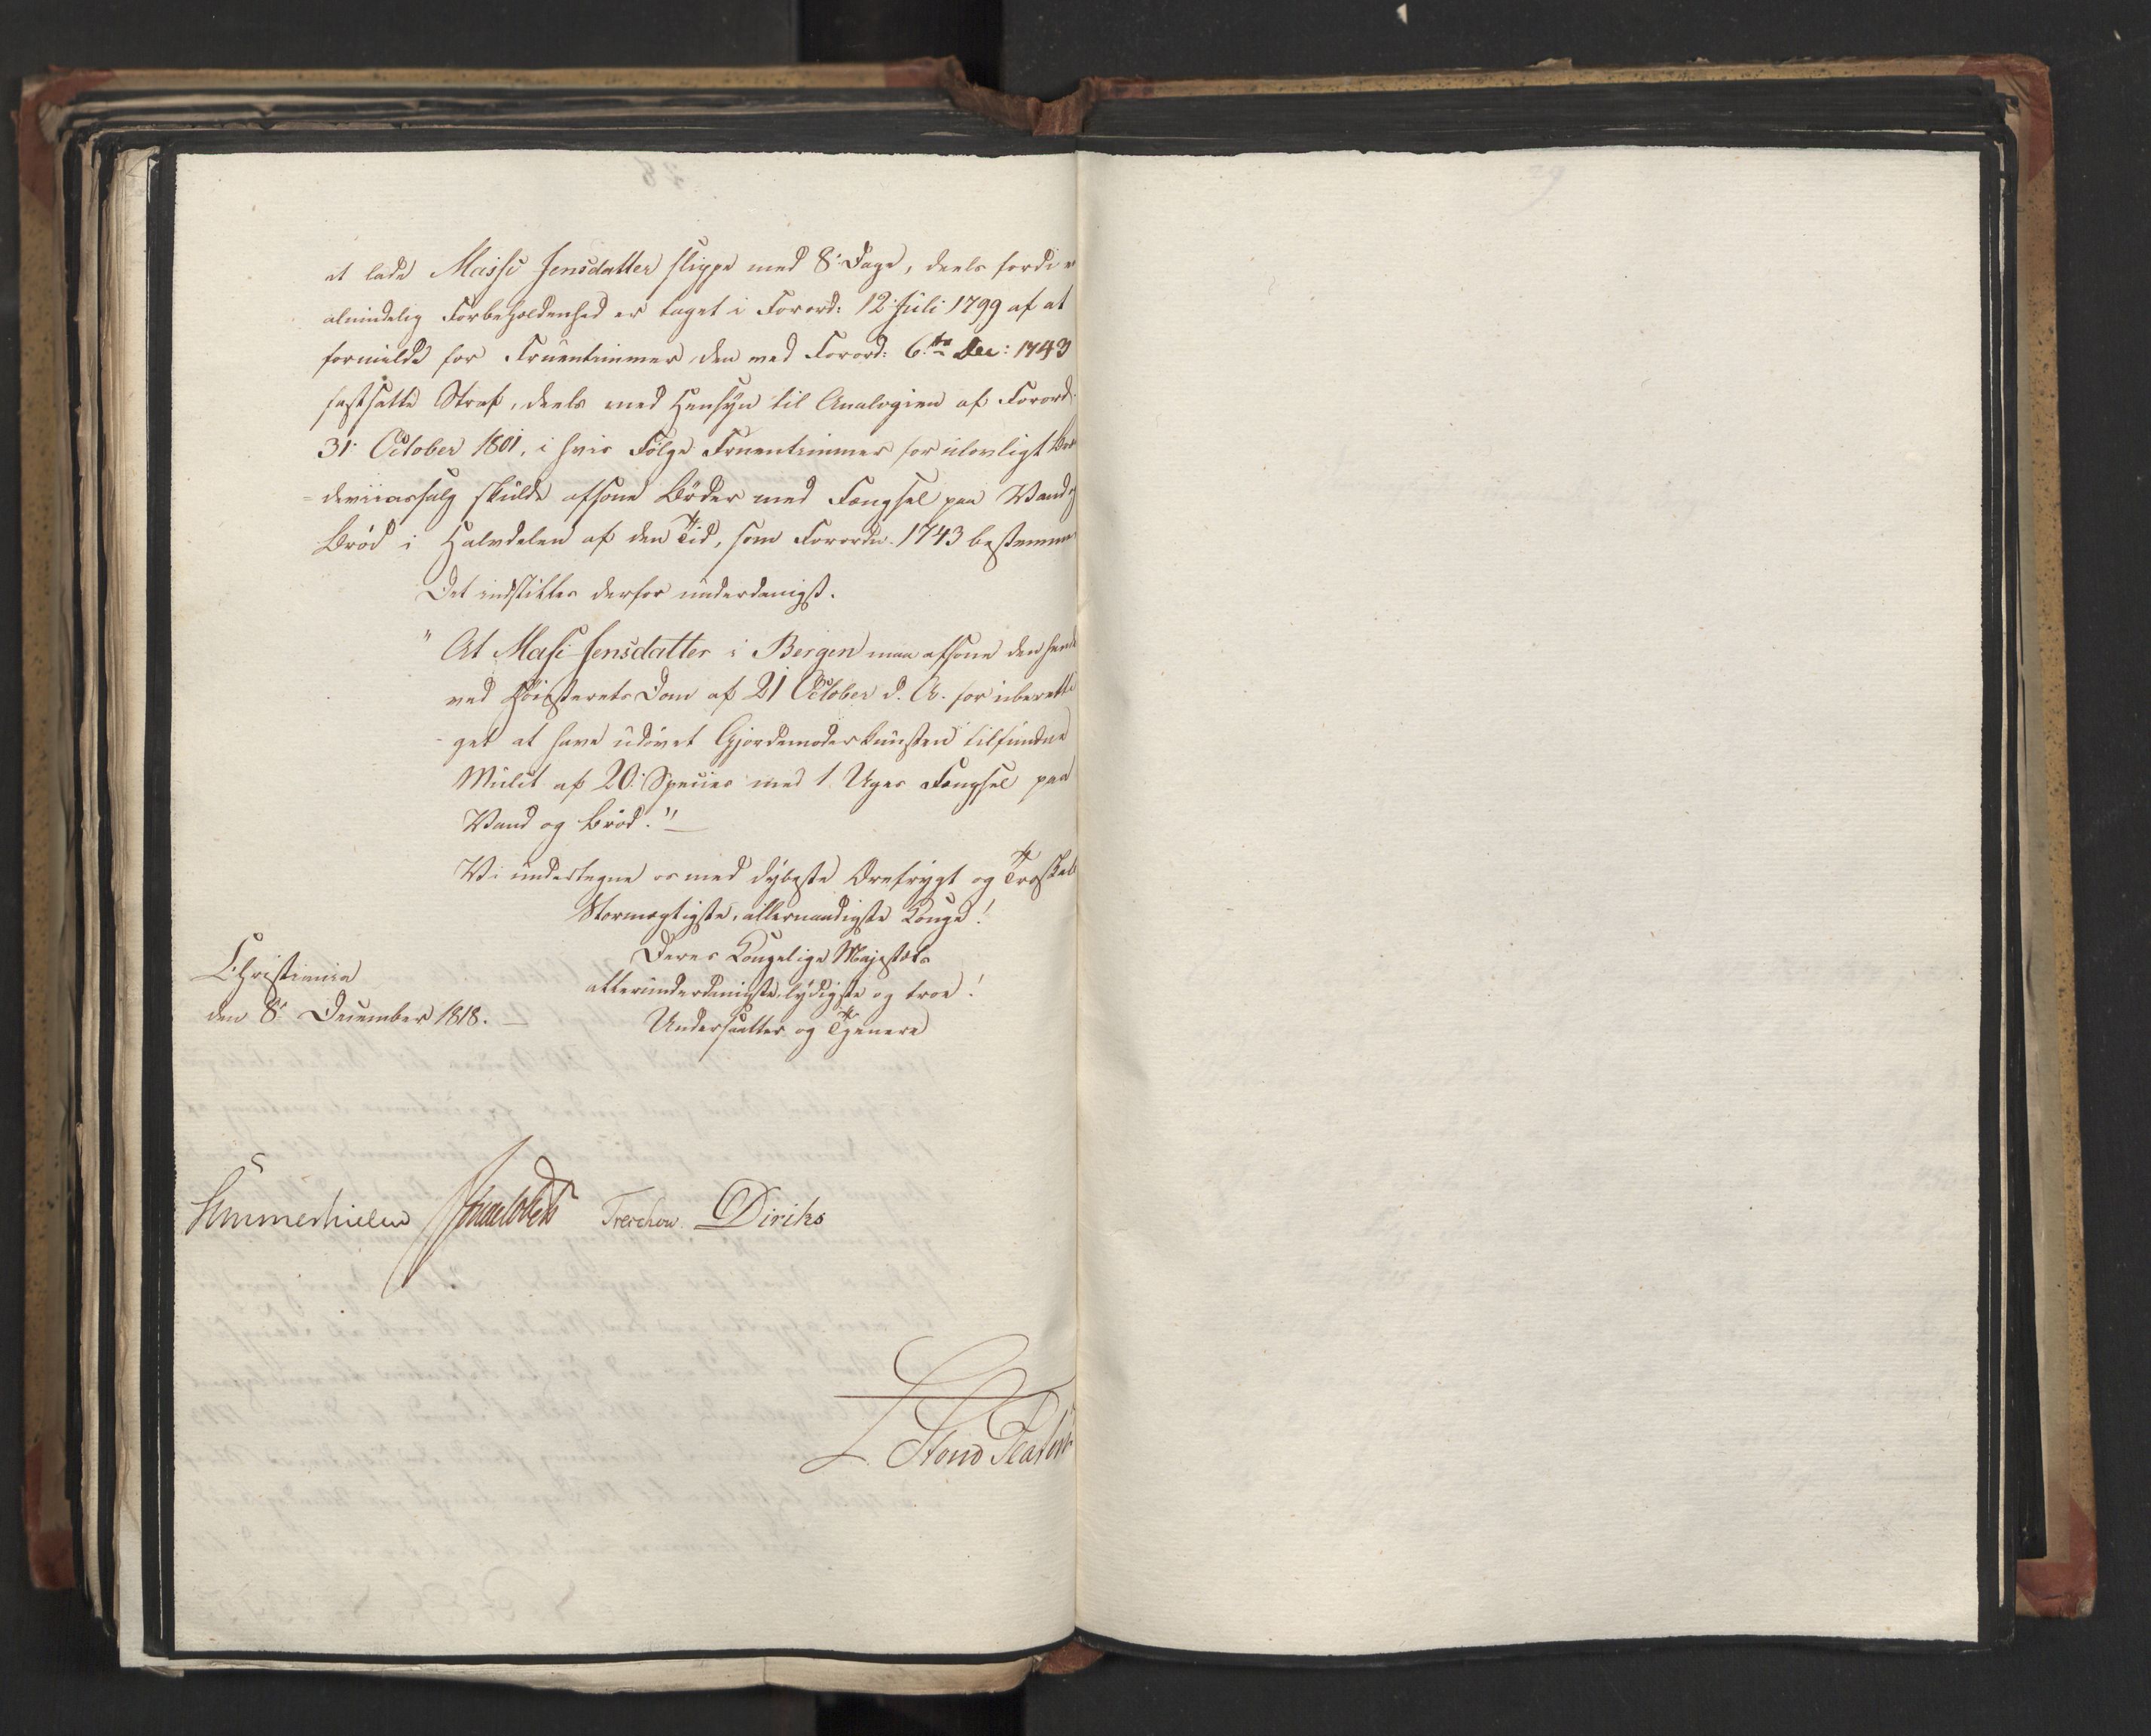 at lade Massi Jensdatter slippe med 8 Dage, deels fordi en
almindelig Forbeholdenhed er taget i Forord: 12 Juli 1799 af at
formilde for Fruentimmer den med Forord: 6te Dec: 1743
fastsatte Straf, deels med Hensyn til Analogien af Forord:
31 October 1801, i hvis Følge Fruentimmer for ulovligt
skulde afsone Bøder med Fængsel paa Vand og
Brød i Halvdelen af den Tid, som Forordn. 1743 bestemmer
Det indstilles derfor underdanigst.
"At Massi Jensdatter i Bergen maa afsone den hende
ved Høiesterets Dom af 21 October d. A. for uberetti
-get at have udøvet Gjordemoderkunsten tilfundne
Mulct af 20 Species med 1 Uges Fængsel paa
Vand og Brød."
Vi undertegne os med dybeste Ærefrygt og Troskab
Stormægtigste, allernaadigste Konge!
Deres Kongelige Majestæts
allerunderdanigste, lydigste og troe!
Undersaatter og Tjenere
Christiania
den 8 December 1818.
Sommerhielm Treschow Diriks
28
29